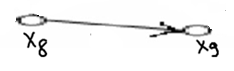 x8 x9